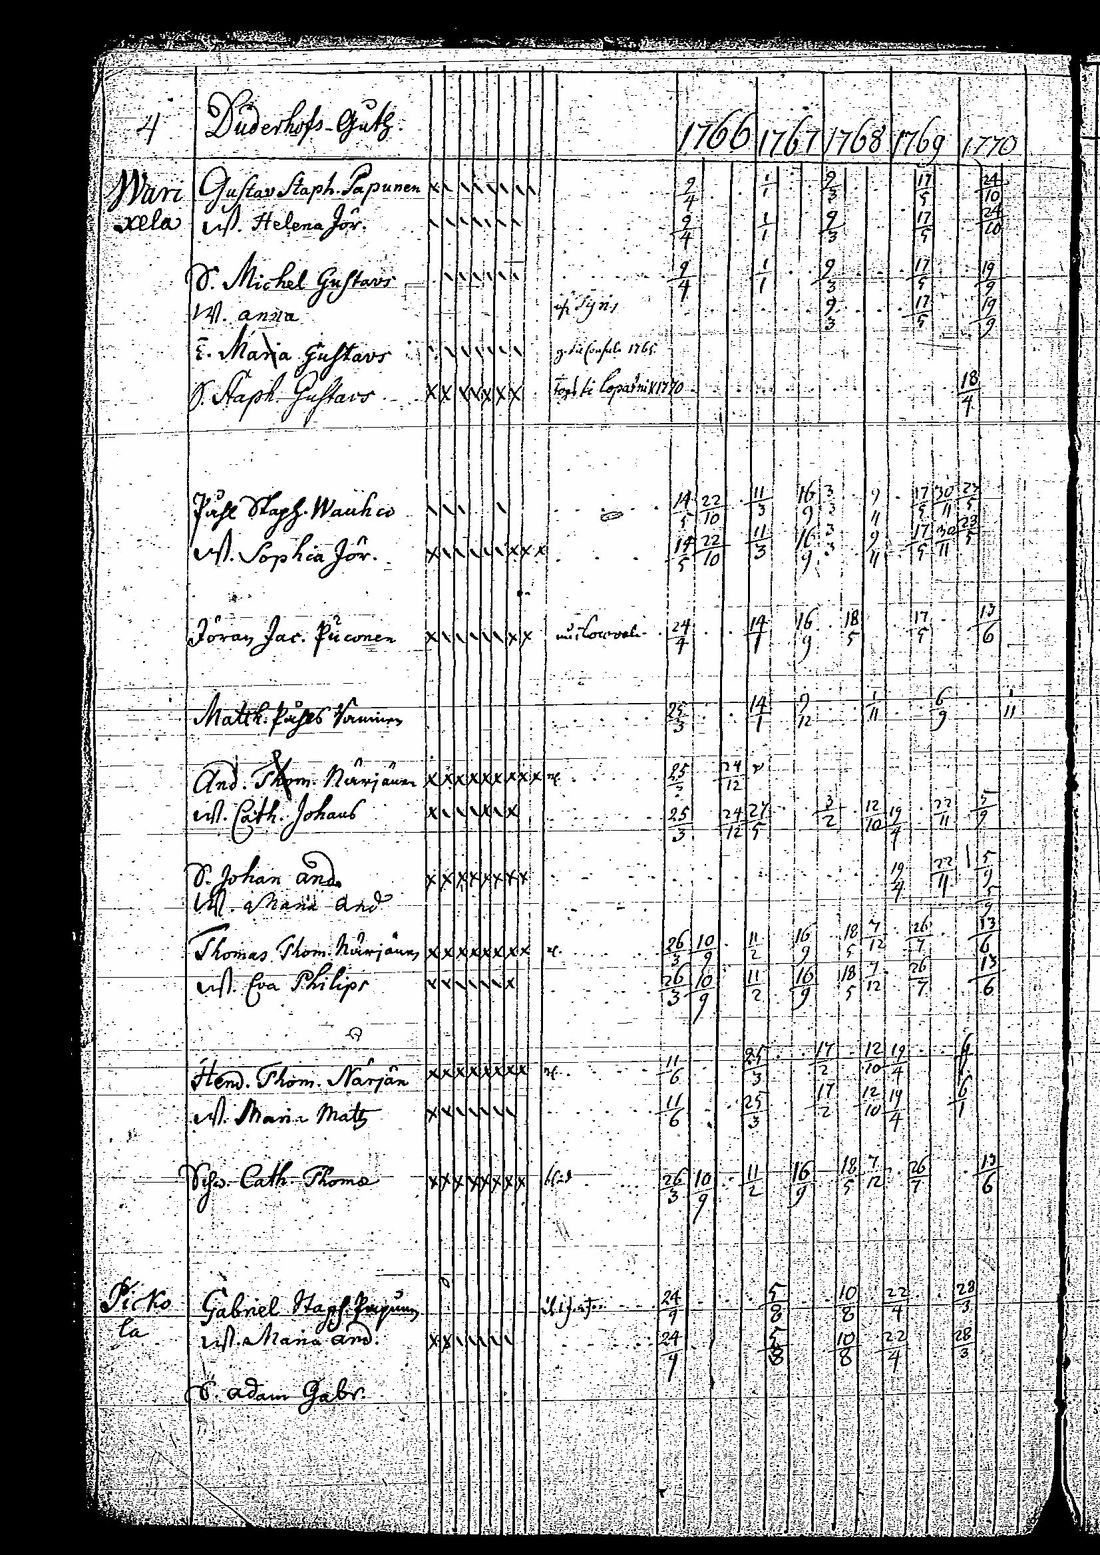 4 Duderhofs-Guth. 1766 1767 1768 1769 1770
Wari Gustav Staph. Papunen x 9/4 1/1 9/3 17/5 24/10
xela W. Helena Jör. 9/4 1/1 9/3 17/5 24/10
S. Michel Gustavs 9/4 1/1 9/3 17/5 19/9
W. anna 9/3 17/5 19/9
T. Maria Gustavs 1765
S. Staph. Gustavs x x x x x x x 1770 18/4
Påhl Staph. Wauhco 14/5 22/10 11/3 16/9 3/3 9/11 17/5 30/11 23/5
W. Sophia Jör. x x x x 14/5 22/10 11/3 16/9 3/3 9/11 17/5 30/11 23/5
Jöran Jac. Puconen x x x 24/4 14/1 16/9 18/5 17/5 13/6
Matth. Påhls 25/3 14/1 9/12 1/11 6/9 1/11
And. Thom. Närjänen x x x x x x x x x 25/3 24/12
W. Cath. Johans x x x 25/3 24/12 27/5 3/2 12/10 19/4 22/11 5/9
S. Johan And. x x x x x x x x 19/4 22/11 5/9
W. Maria And 5/9
Thomas Thom. Närjänen x x x x x x x x 26/3 10/9 11/2 16/9 18/5 7/12 26/7 13/6
W. Eva Philips x x 26/3 10/9 11/2 16/9 18/5 7/12 26/7 13/6
Hend. Thom. Närjän x x x x x x x x 11/6 25/3 17/2 12/10 19/4 6/1
W. Maria Matts x x 11/6 25/3 17/2 12/10 19/4 6/1
Schw. Cath. Thoma x x x x x x x x 26/3 10/9 11/2 16/9 18/5 7/12 26/7 13/6
Picko Gabriel Staph. Papunen 24/9 5/8 10/8 22/4 28/3
la W. Maria And. x x 24/9 5/8 10/8 22/4 28/3
S. adam Gabr.